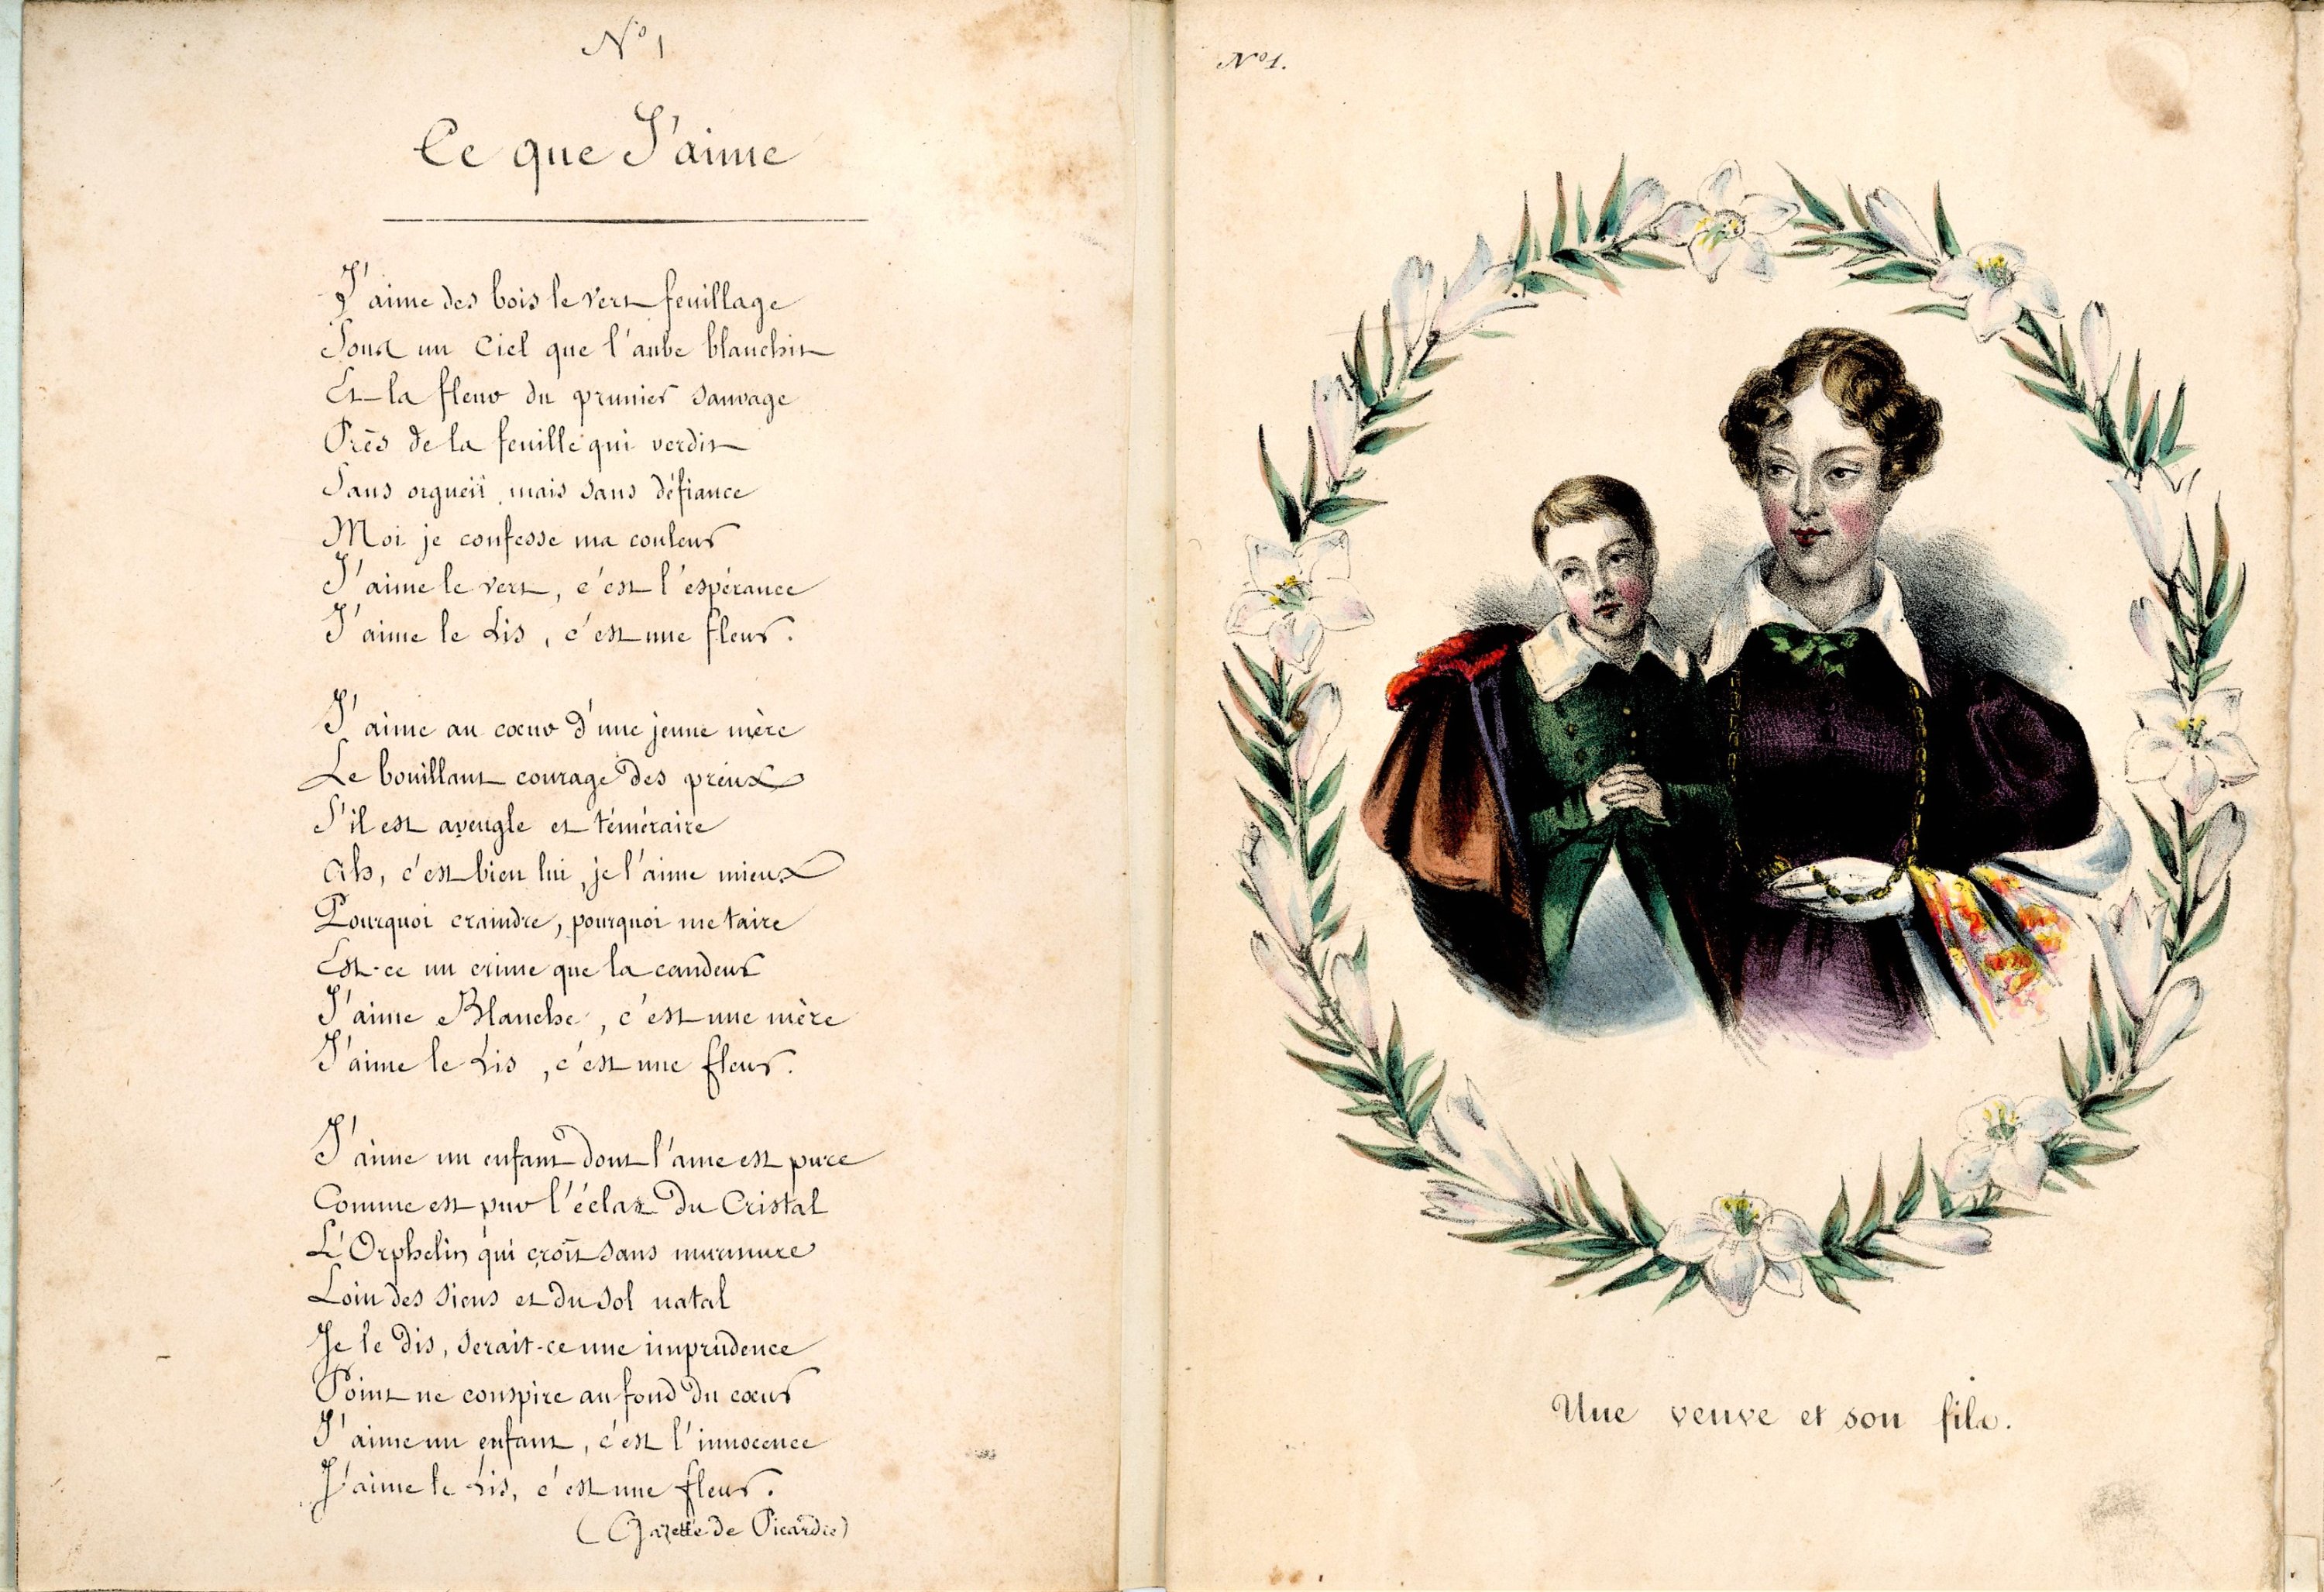 N° 1
Ce que J'aime
J'aime des bois le vert feuillage
Sous un Ciel que l'aube blanchit
Et la fleur du prunier sauvage
Près de la feuille qui verdit
Sans orgueil, mais sans défiance
Moi je confesse ma couleur
J'aime le vert, c'est l'espérance
J'aime le Lis, c'est une fleur.
J'aime au cœur d'une jeune mère
Le bouillant courage des preux
S'il est aveugle et téméraire
Ah, c'est bien lui, je l'aime mieux
Pourquoi craindre, pourquoi me taire
Est-ce un crime que la candeur
J'aime Blanche, c'est une mère
J'aime le Lis, c'est une fleur.
J'aime un enfant dont l'ame est pure
Comme est pur l'éclat du Cristal
L'Orphelin qui croît sans murmure
Loin des siens et du sol natal
Je le dis, serait-ce une imprudence
Point ne conspire au fond du cœur
J'aime un enfant, c'est l'innocence
J'aime le Lis, c'est une fleur.
(Gazette de Picardie)
N° 1.
Une veuve et son fils.